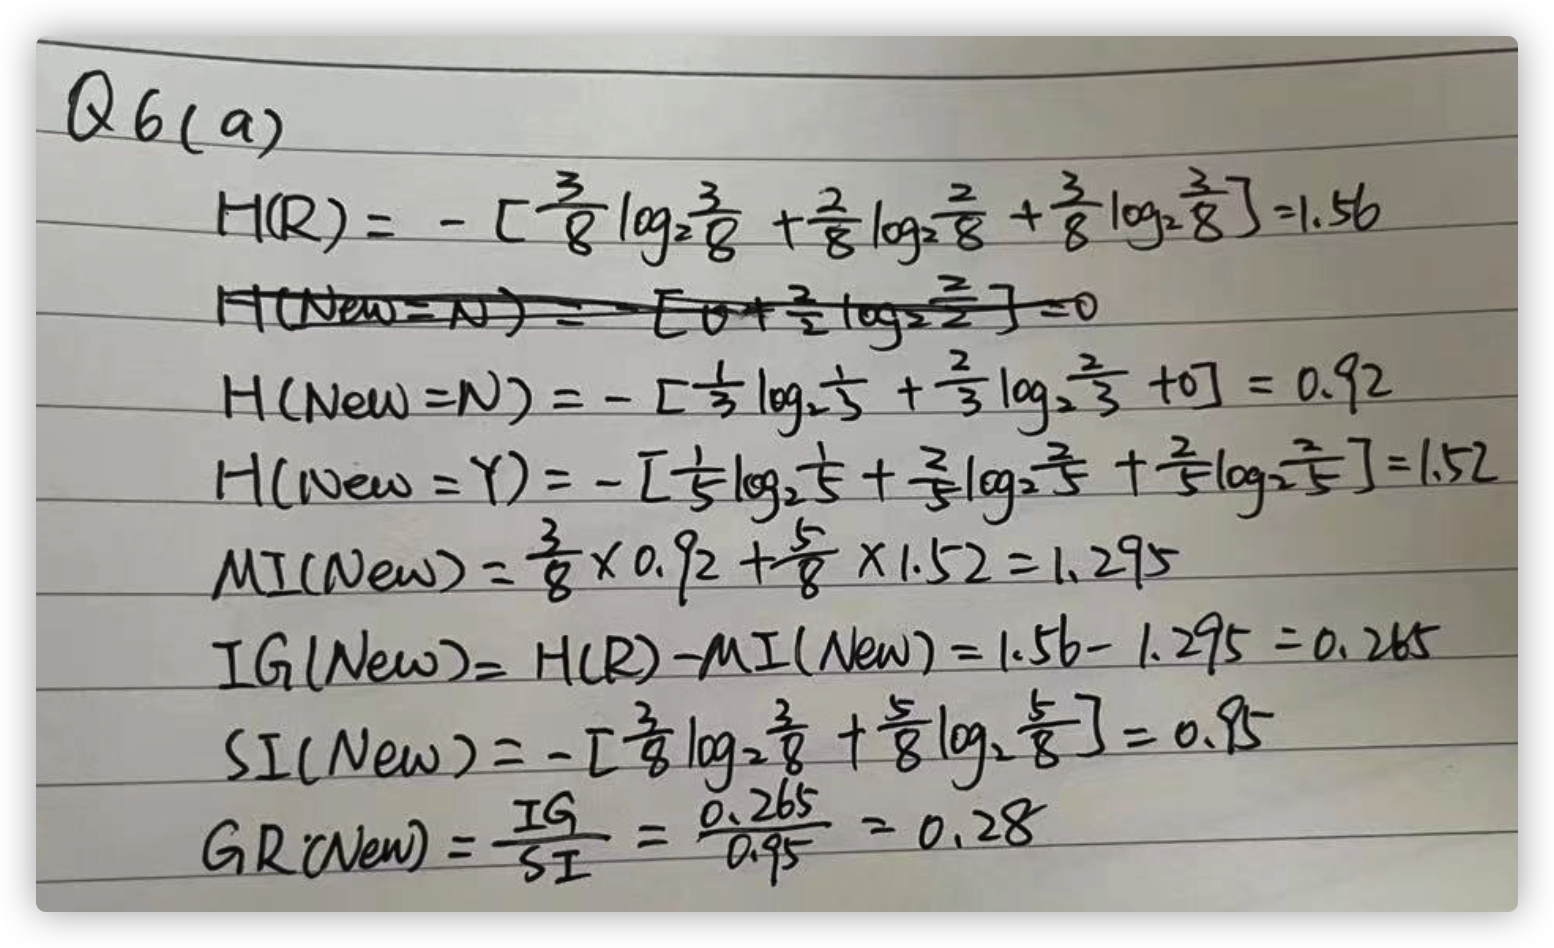 Q6(a)
H(R) = - [3/8 log₂ 3/8 + 2/8 log₂ 2/8 + 3/8 log₂ 3/8] = 1.56
H(New=N) = - [0 + 2/2 log₂ 2/2] = 0
H(New=N) = - [1/3 log₂ 1/3 + 2/3 log₂ 2/3 + 0] = 0.92
H(New=Y) = - [1/5 log₂ 1/5 + 2/5 log₂ 2/5 + 2/5 log₂ 2/5] = 1.52
MI(New) = 3/8 × 0.92 + 5/8 × 1.52 = 1.295
IG(New) = H(R) - MI(New) = 1.56 - 1.295 = 0.265
SI(New) = - [3/8 log₂ 3/8 + 5/8 log₂ 5/8] = 0.95
GR(New) = IG/SI = 0.265/0.95 = 0.28